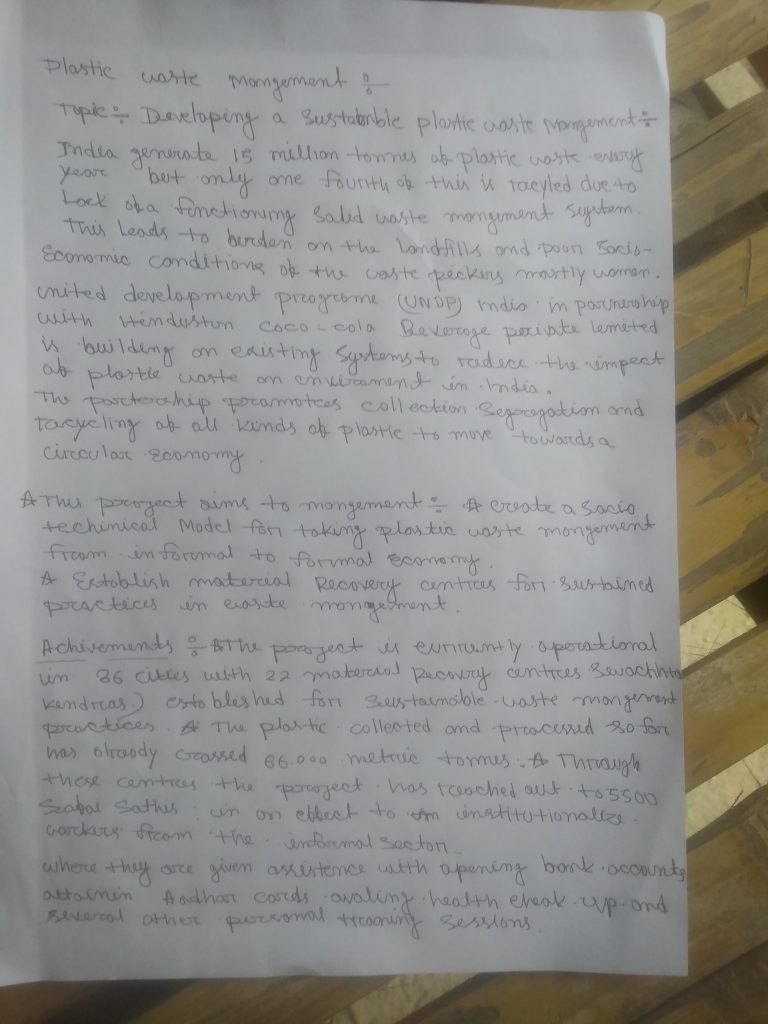 Plastic waste mangement ÷
Topic ÷ Developing a sustainble plastic waste mangement ÷
India generate 15 million tonnes of plastic waste every
year but only one fourth of this is racyled due to
Lack of a functioning Salid waste mangement system.
This leads to burden on the landfills and poor Socio-
Economic conditions of the waste peckers mostly women.
united development programe (UNDP) India in partnership
with Hindustan coco-cola Beverage private lemited
is building on existing systems to reduce the impact
of plastic waste on envirament in India.
The partership pramotes collection Segregation and
racycling of all kinds of plastic to move towards a
circular Economy.
☆ This project aims to mangement ÷ ☆ create a Socio
techinical Model for taking plastic waste mangement
from informal to formal economy.
☆ Establish material Recovery centres for sustained
practices in waste mangement.
Achivements ÷ ☆ The project is currently operational
in 36 cities with 22 material Recovry centres
kendras) established for sustainable waste mangement
practices. ☆ The plastic collected and processed so far
has already crossed 66.000 metric tonnes. ☆ Through
these centres the project has reached out to 5500
Sathis in an effect to institutionalize
workers from the informal sector
where they are given assistence with opening bank accounts
attainin Aadhar cards availing health cheak up and
several other personal training Sessions.